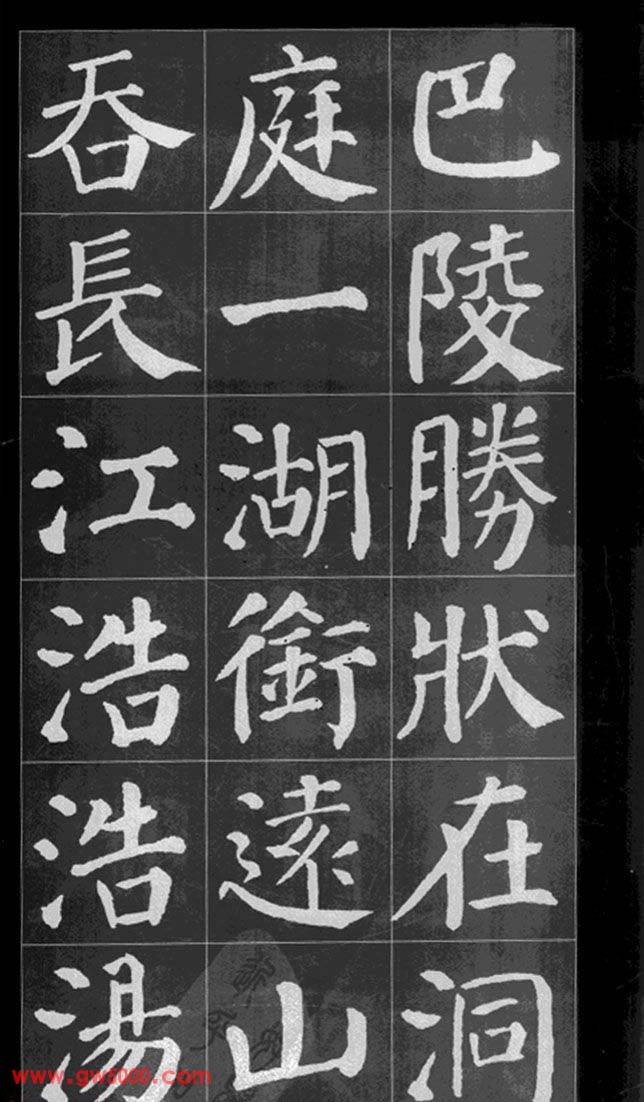 巴陵勝狀在洞
庭一湖銜遠山
吞長江浩浩湯
www.gwf000.com